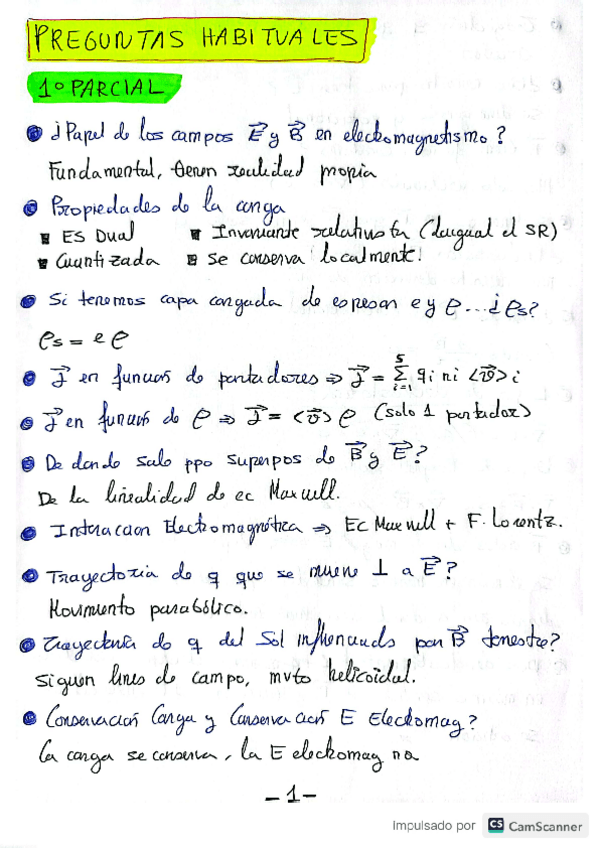 PREGUNTAS HABITUALES
1º PARCIAL
¿Papel de los campos E⃗ y B⃗ en electromagnetismo?
Fundamental, tienen realidad propia
Propiedades de la carga
ES Dual Invariante relativista (da igual el SR)
Cuantizada Se conserva localmente!
Si tenemos capa cargada de espesor e y ρ...¿ρs?
ρs = e ρ
J⃗ en función de portadores ⇒ J⃗ = Σ_{i=1}^{5} qi ni <v⃗>i
J⃗ en función de ρ ⇒ J⃗ = <v⃗> ρ (solo 1 portador)
De donde sale ppo superpos de B⃗ y E⃗?
De la linealidad de ec Maxwell.
Interacción Electromagnética ⇒ Ec Maxwell + F. Lorentz.
Trayectoria de q que se mueve ⊥ a E⃗?
Movimiento parabólico.
Trayectoria de q del Sol influenciada por B⃗ terrestre?
Siguen lines de campo, mvto helicoidal.
Conservación Carga y Conservación E Electromag?
La carga se conserva, la E electromag no
-1-
Impulsado por CS CamScanner